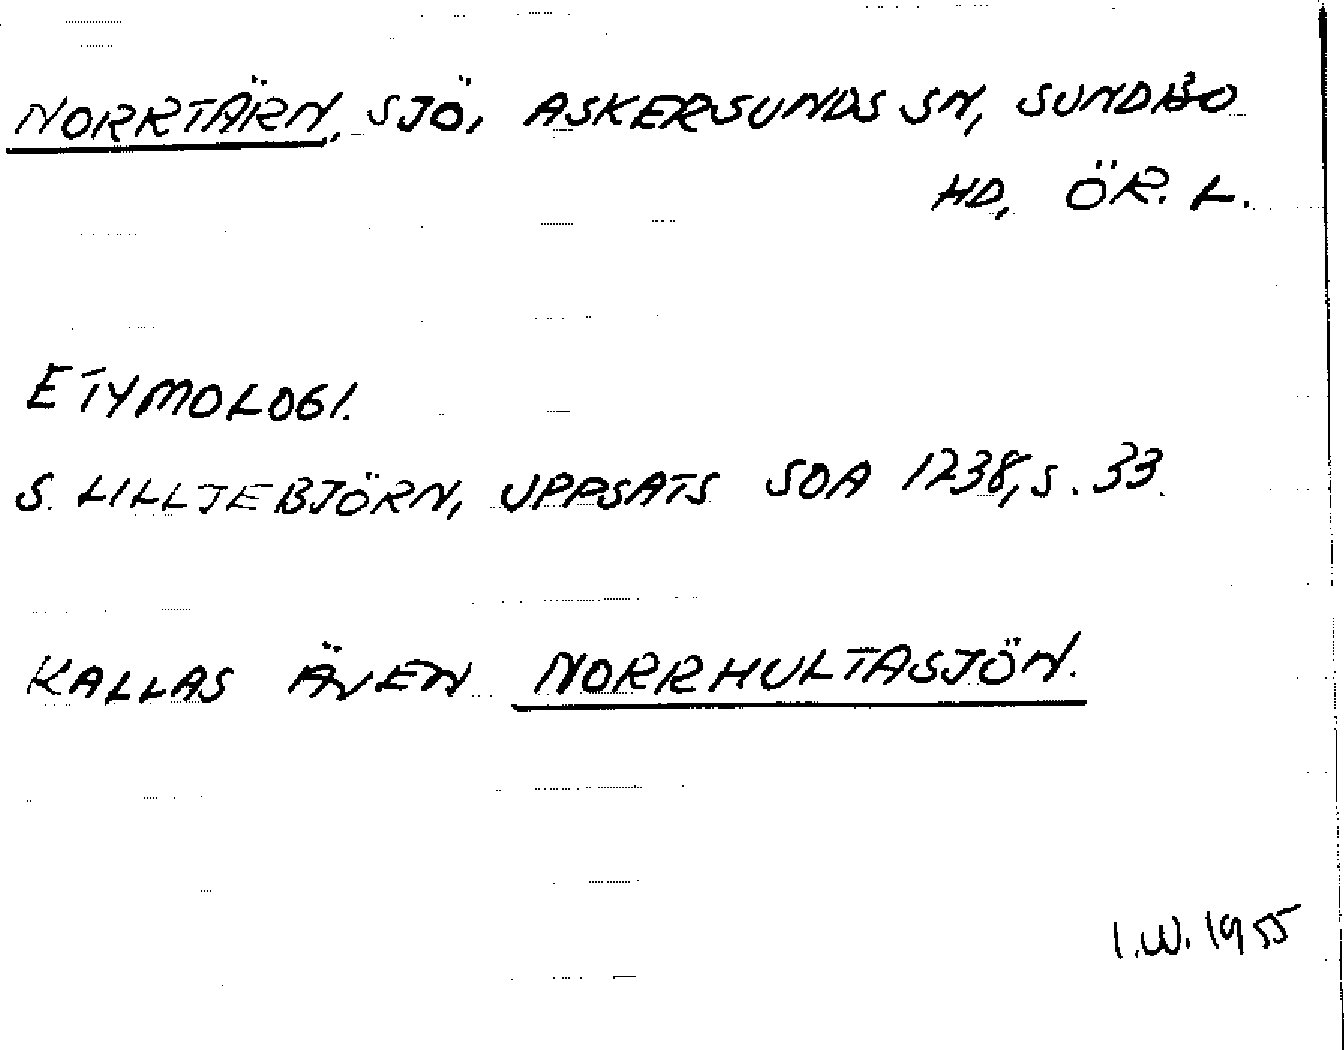 NORRTÄRN, SJÖ, ASKERSUNDS SN, SUNDBO
HD, ÖR. L.
ETYMOLOGI.
S. LILLJEBJÖRN, UPPSATS SOA 1238, S. 33.
KALLAS ÄVEN NORRHULTASJÖN.
I.W. 1955